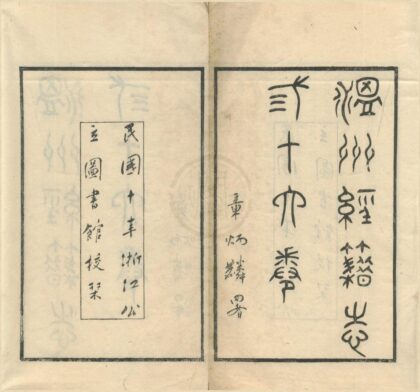 溫州經籍志
三十六卷
章炳麟署
民國十年浙江公
立圖書館校栞